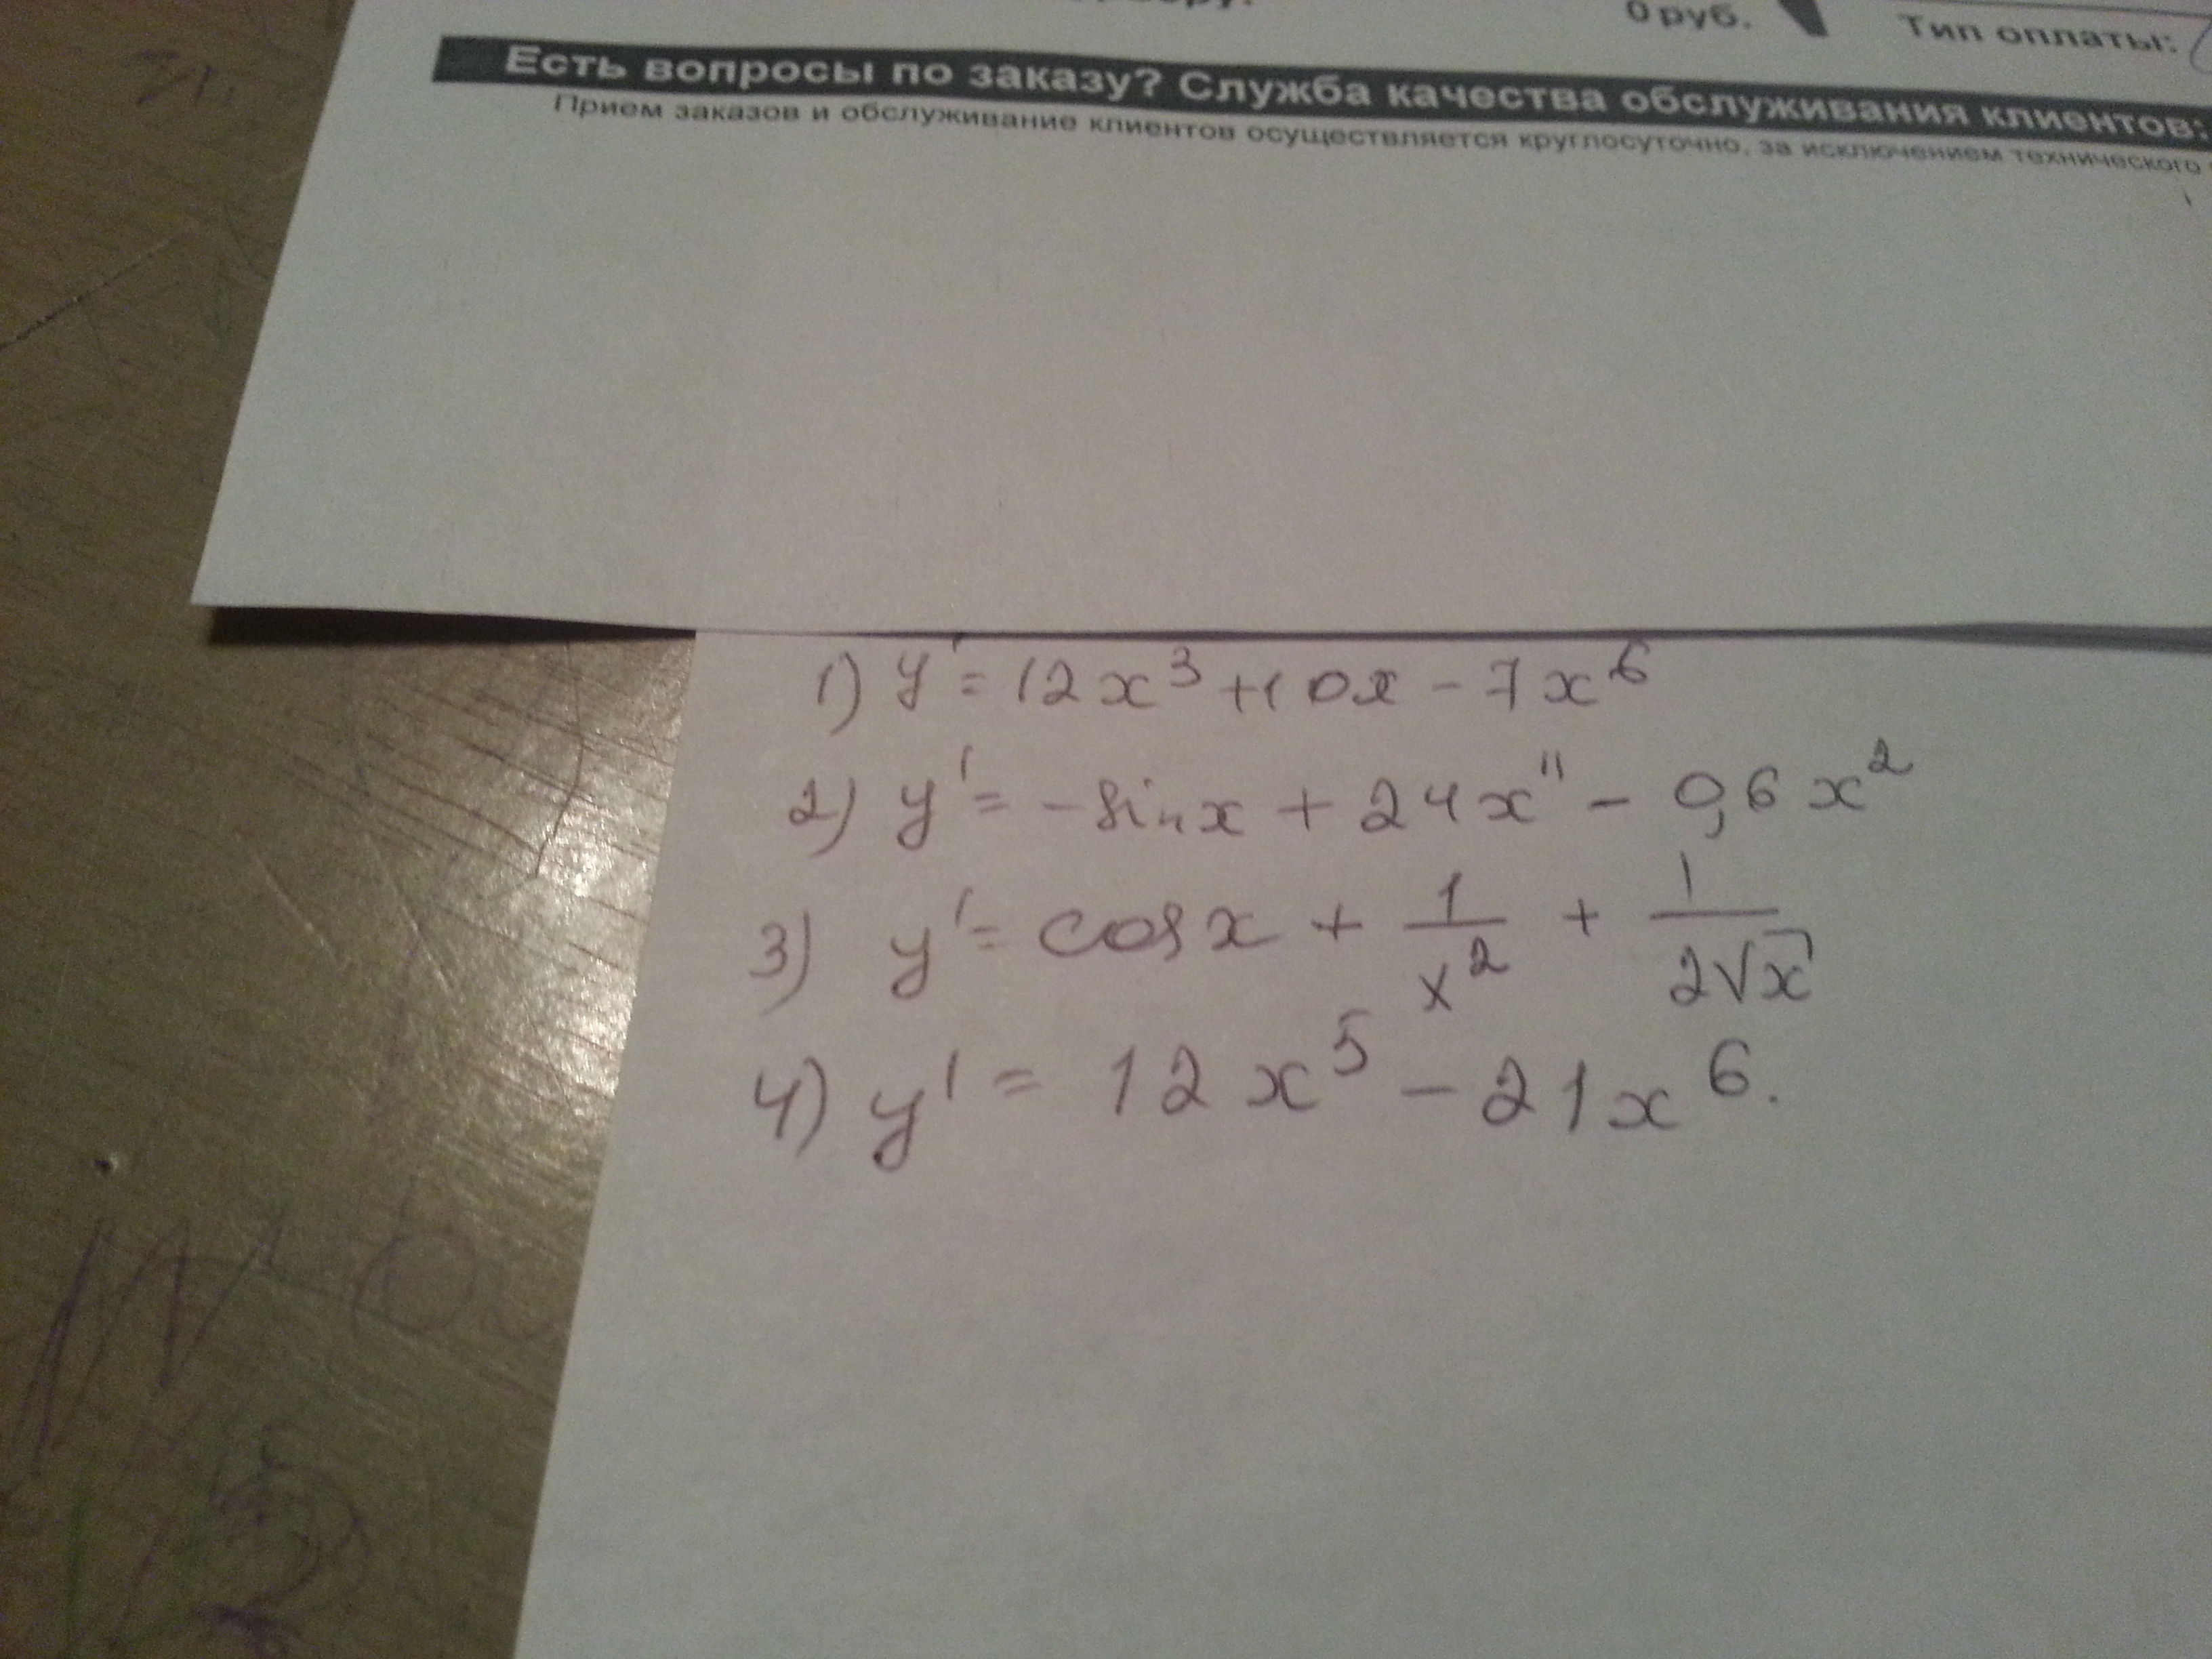 0 руб. Тип оплаты:
Есть вопросы по заказу? Служба качества обслуживания клиентов:
Прием заказов и обслуживание клиентов осуществляется круглосуточно, за исключением технического
1) y' = 12x³ + 10x - 7x⁶
2) y' = - sin x + 24x¹¹ - 0,6x²
3) y' = cos x + 1/x² + 1/(2√x)
4) y' = 12x⁵ - 21x⁶.